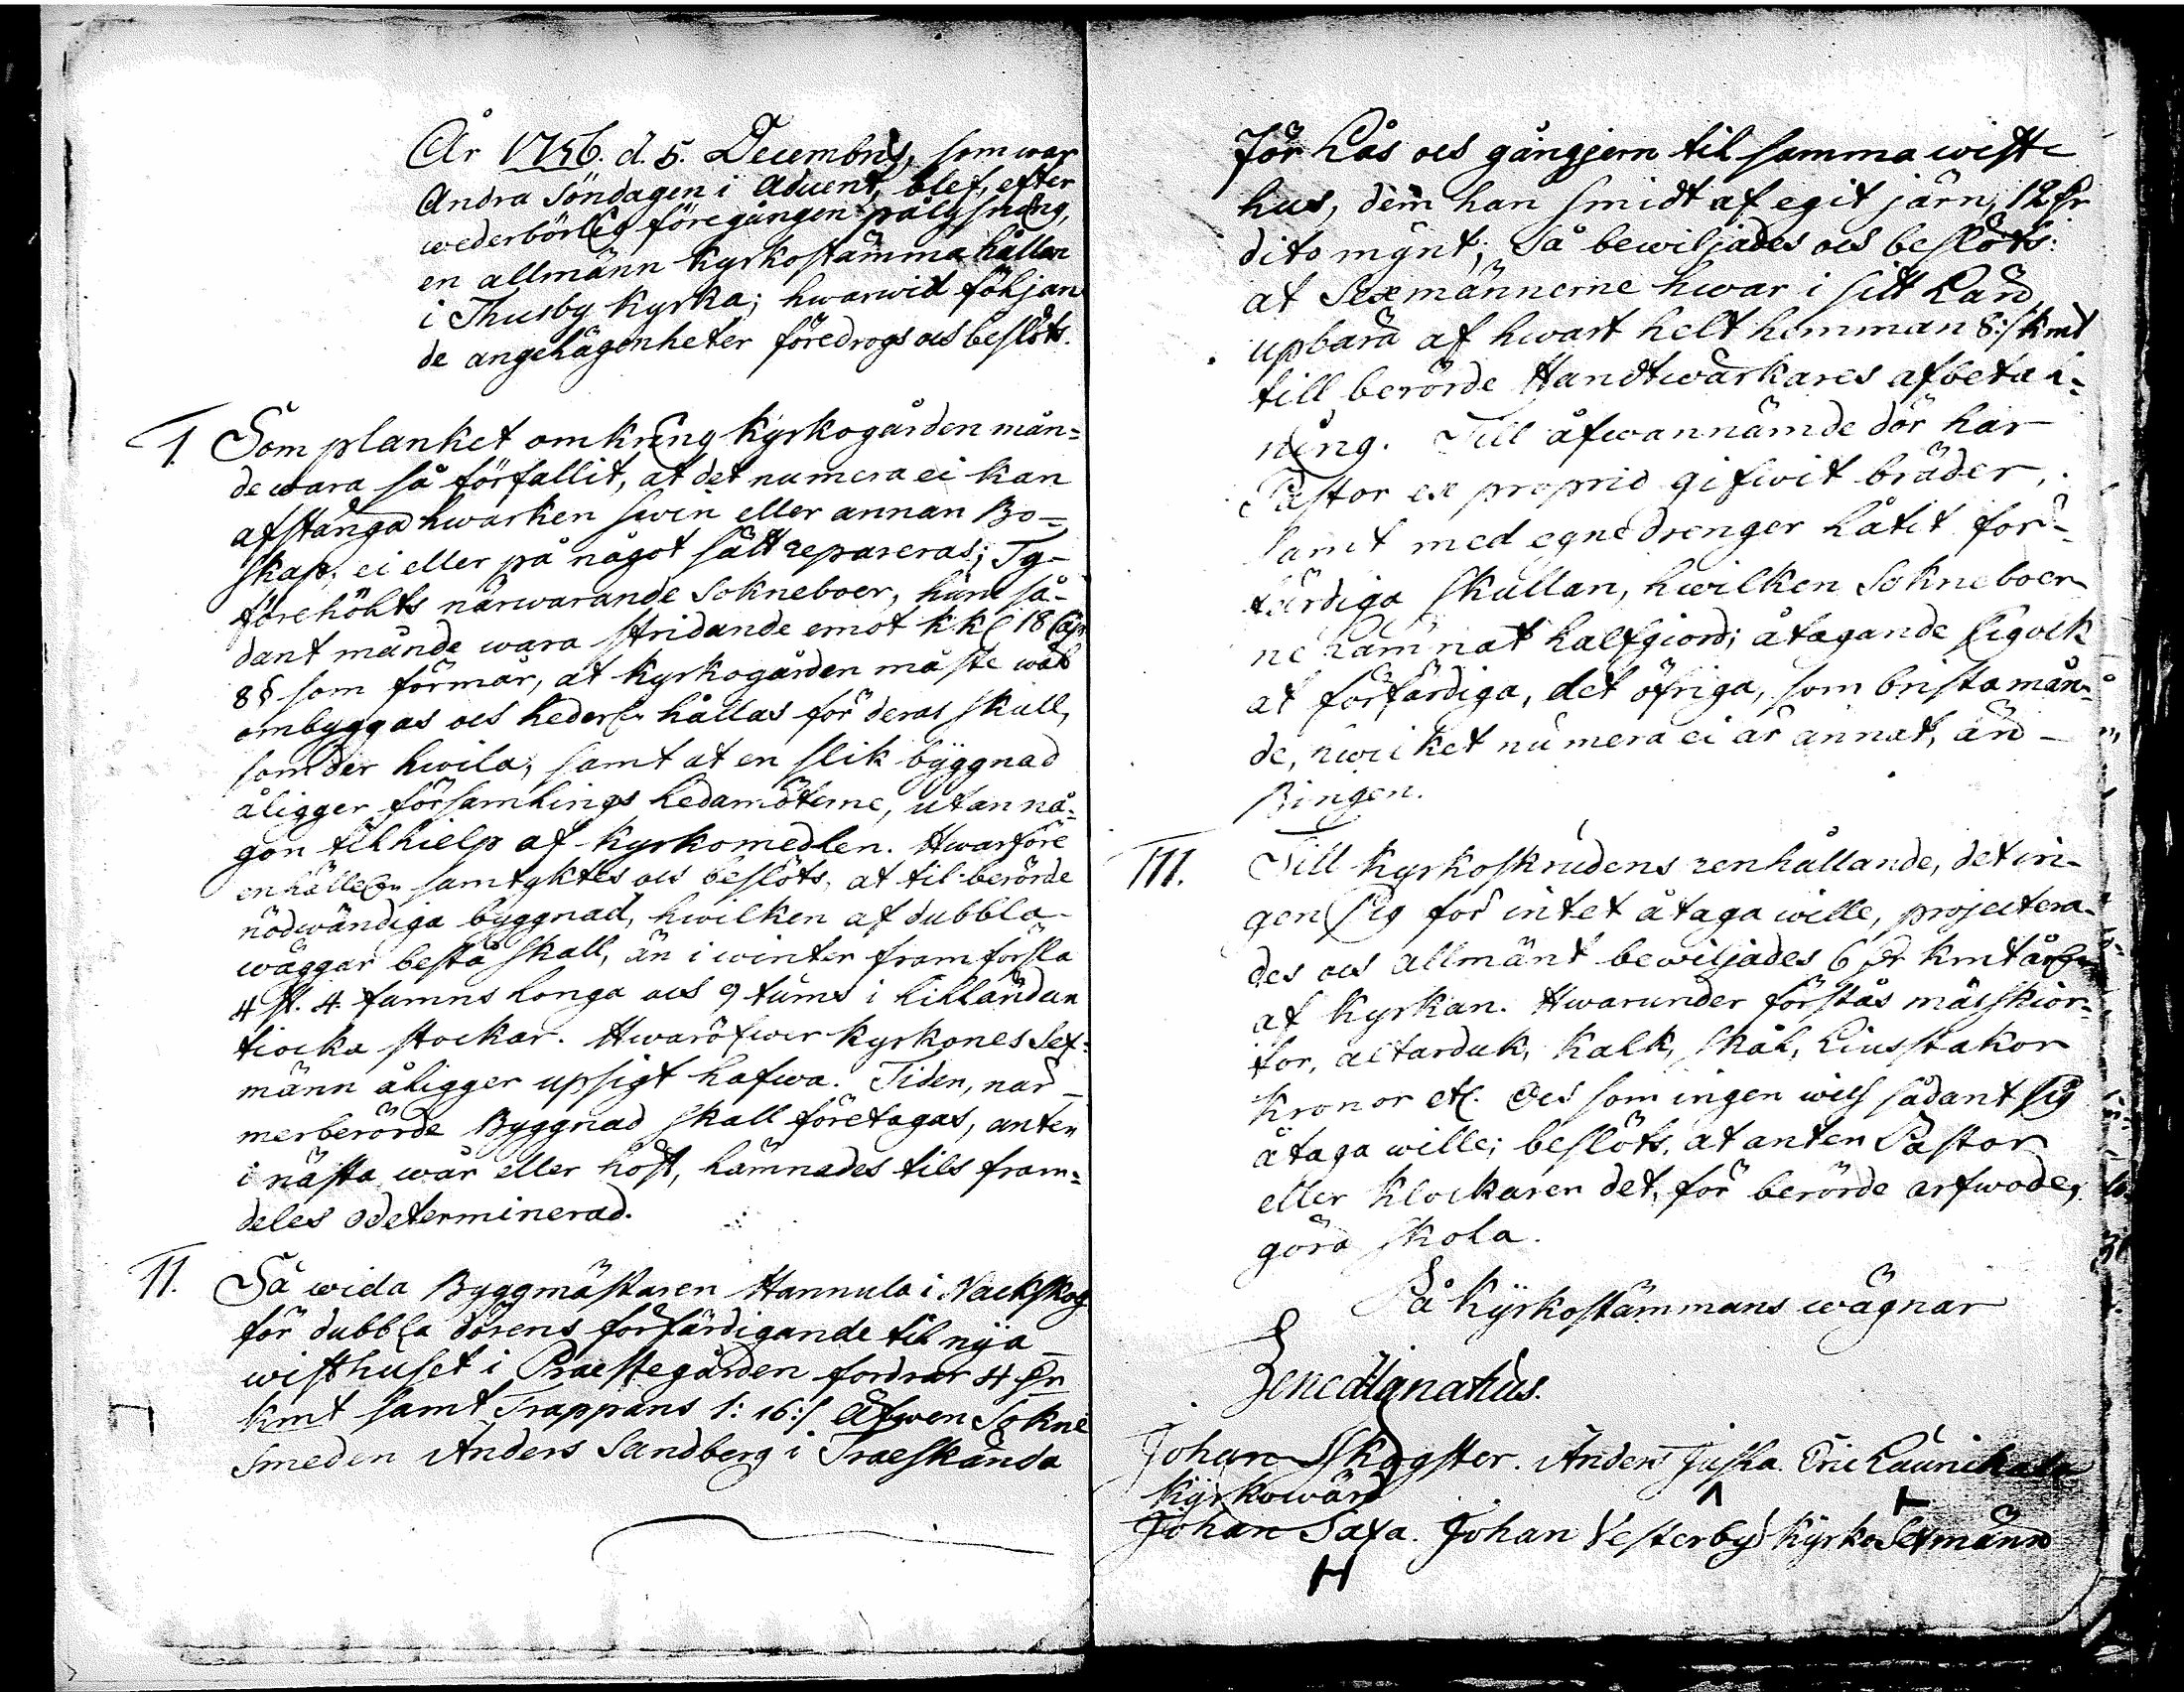 År 1756. d. 5. Decembris, som war
Andra Söndagen i Advent, blef, efter
wederbörlig föregången pålysning,
en allmänn Kyrkostämma hållen
i Thusby Kyrka; hwarwid följan
de angelägenheter föredrogs och beslöts.
I. Som planket omkring Kyrkogården mån=
de wara så förfallit, at det numera ei kan
afstänga hwarken swin eller annan Bo=
skap, ei eller på något sätt repareras; Ty
förehölts närwarande Sokneboer, huru så-
dant månde wara stridande emot KKL 18 Cap.
8 § som förmår, at Kyrkogården måste wäl
ombyggas och hederl. hållas för deras skull,
som der hwila; samt at en slik byggnad
åligger församlings ledamöterne, utan nå=
gon tilhielp af Kyrkomedlen. Hwarföre
enhälleln samtyktes och beslöts, at til berörde
nödwändiga byggnad, hwilken af dubbla
wäggar bestå skall, än i winter framforsla
4 st. 4 famns longa och 9 tums i lilländan
tiocka stockar. Hwaröfwer Kyrkones Sex=
männ åligger upsigt hafwa. Tiden, när
merberörde Byggnad skall företagas, anten
i nästa wår eller höst, lämnades tils fram=
deles odeterminerad.
II. Så wida Byggmästaren Hannula i Nackskog
för dubbla dörens förfärdigande til nya
wisthuset i Præstegården fordrar 4 Dr
kmt samt Trappans 1: 16:/ Äfwen Sokne
Smeden Anders Sandberg i Træskända
för Lås och gångjern til samma wist
hus, dem han smidt af egit järn, 12 Dr
dito mynt; Så bewiljades och beslöts:
at Sexmännerne hwar i sitt Land
upbära af hwart helt hemman 8:/ kmt
till berörde Handtwärkares afbetal=
ning. Till åfwannämde dör har
Pastor ex proprio gifwit bräder,
samt med egne drenger låtit för=
färdiga skullan, hwilken Sokneboer
ne lämnat halfgiord; åtagande sig och
at förfärdiga, det öfriga, som brista mån=
de, hwilket numera ei är annat, än
Bingen.
III. Till Kyrkoskrudens renhållande, det in=
gen sig för intet åtaga wille, projectera=
des och allmänt bewiljades 6 Dr kmt årln
af Kyrkan. Hwarunder förstås mässkior=
tor, altarduk, Kalk, skål, Liusstakor
Kronor etc. Och som ingen wiss sådant sig
åtaga wille; beslöts, at anten Pastor
eller Klockaren det, för berörde arfwode,
göra skola.
På Kyrkostämmans wägnar
Bened. Ignatius.
Johan Skogster. Anders Juska. Eric Launikala
Kyrkowärd
Johan Saxa. Johan Vesterby Kyrko Sexmänn